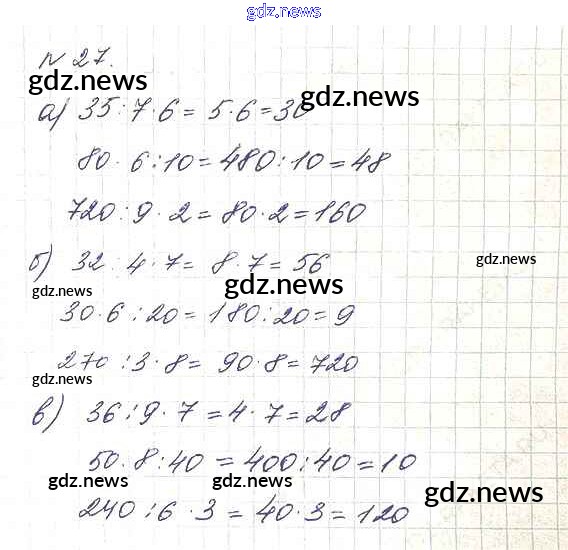 gdz.news
N 27.
gdz.news
gdz.news
а) 35:7·6 = 5·6 = 30
80·6:10 = 480:10 = 48
720:9·2 = 80·2 = 160
б) 32:4·7 = 8·7 = 56
gdz.news
gdz.news
gdz.news
30·6:20 = 180:20 = 9
270:3·8 = 90·8 = 720
gdz.news
в) 36:9·7 = 4·7 = 28
50·8:40 = 400:40 = 10
gdz.news
gdz.news
gdz.news
240:6·3 = 40·3 = 120